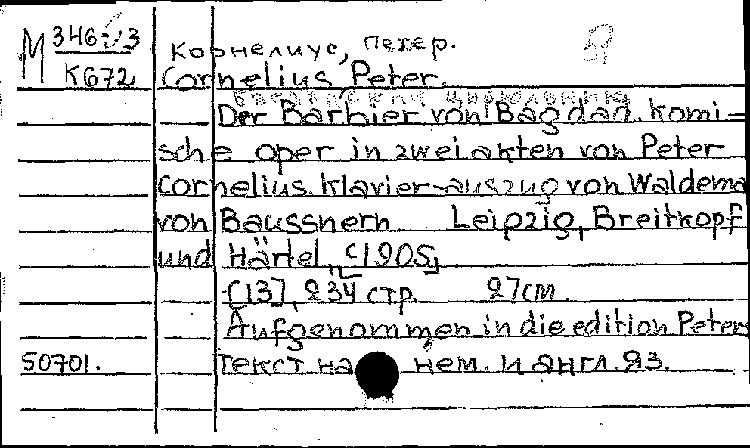 M 346
K672
Корнелиус, Петер.
Cornelius Peter.
Багдадский цирюльник
Der Barbier von Bagdad. Komi-
sche oper in zwei akten von Peter
Cornelius. Klavier-auszug von Waldema
von Baussnern Leipzig, Breitkopf
und Härtel, c1905,
[13], 234 стр. 27 см.
Aufgenommen in die edition Peters
50701. Текст на нем. и англ. яз.